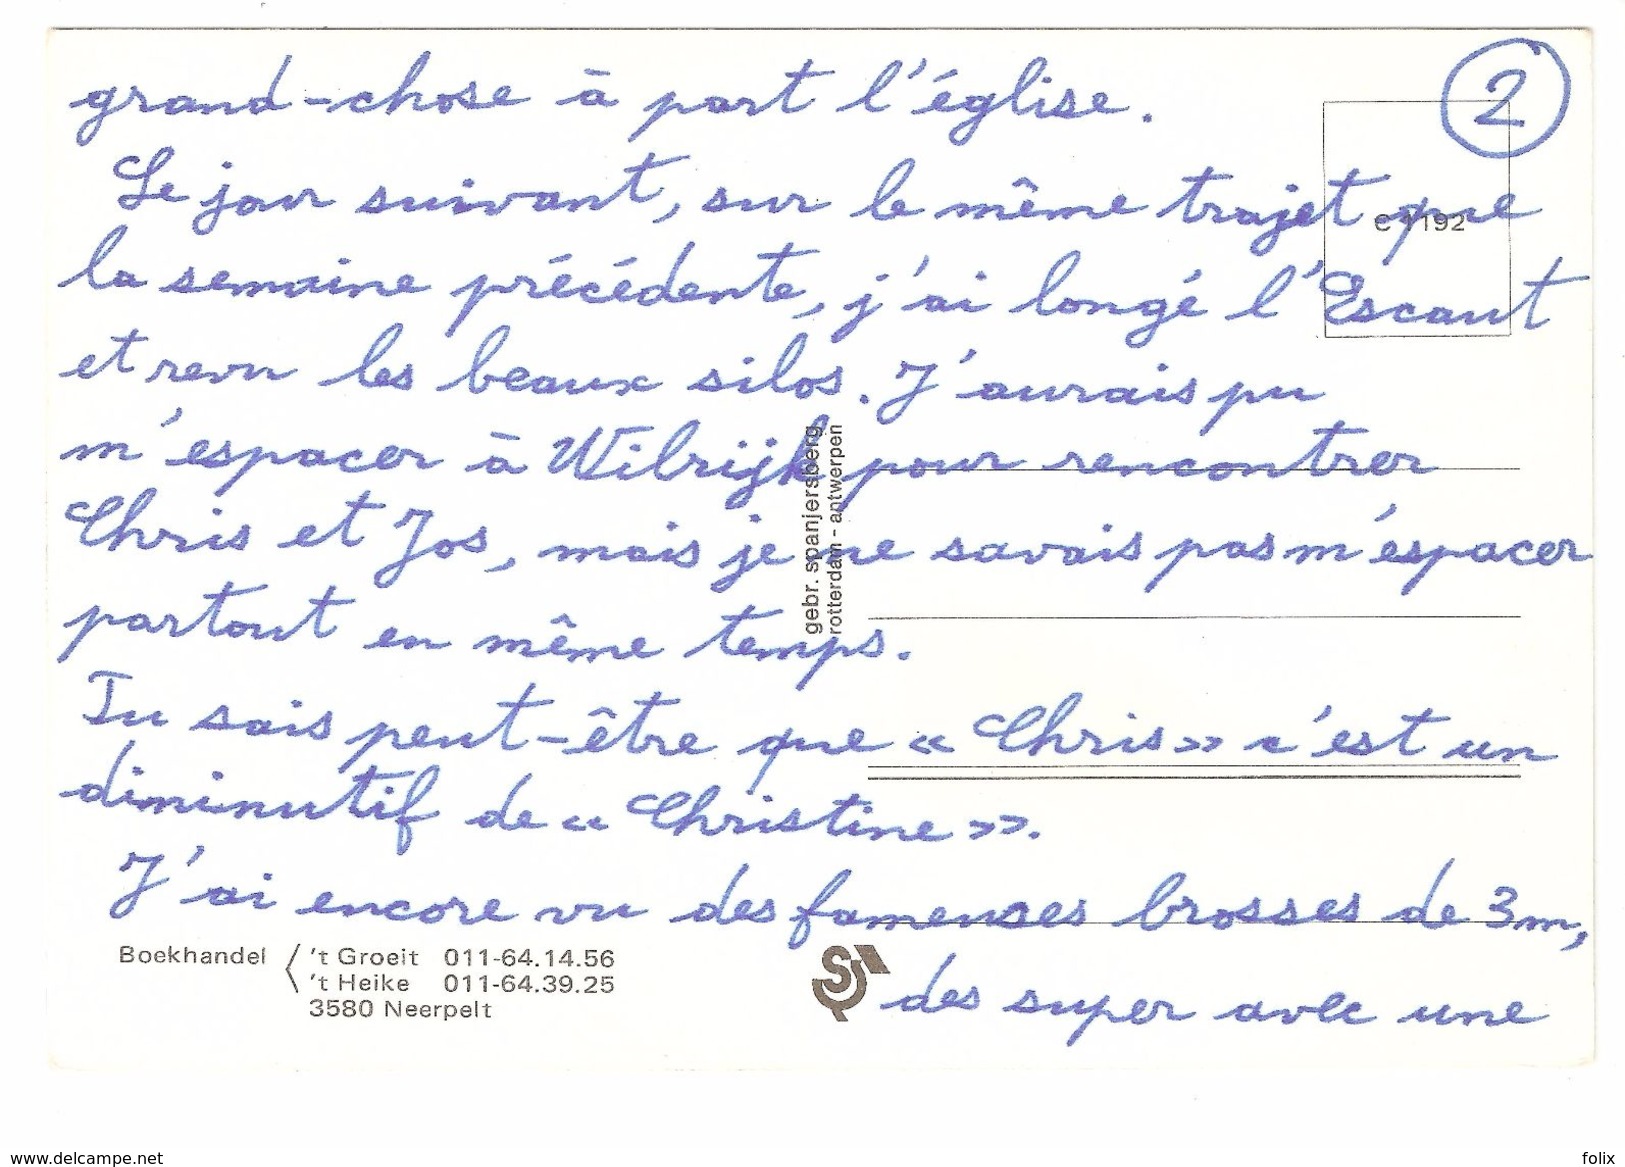 2
grand-chose à part l'église.
Le jour suivant, sur le même trajet que
C 1192
la semaine précédente, j'ai longé l'Escaut
et revu les beaux silos. J'aurais pu
m'espacer à Wilrijk pour rencontrer
Chris et Jos, mais je ne savais pas m'éspacer
partout en même temps.
gebr. spanjersberg
rotterdam - antwerpen
Tu sais peut-être que « Chris » c'est un
diminutif de « Christine ».
J'ai encore vu des fameuses brosses de 3m,
des super avec une
Boekhandel 't Groeit 011-64.14.56
't Heike 011-64.39.25
3580 Neerpelt
www.delcampe.net
folix